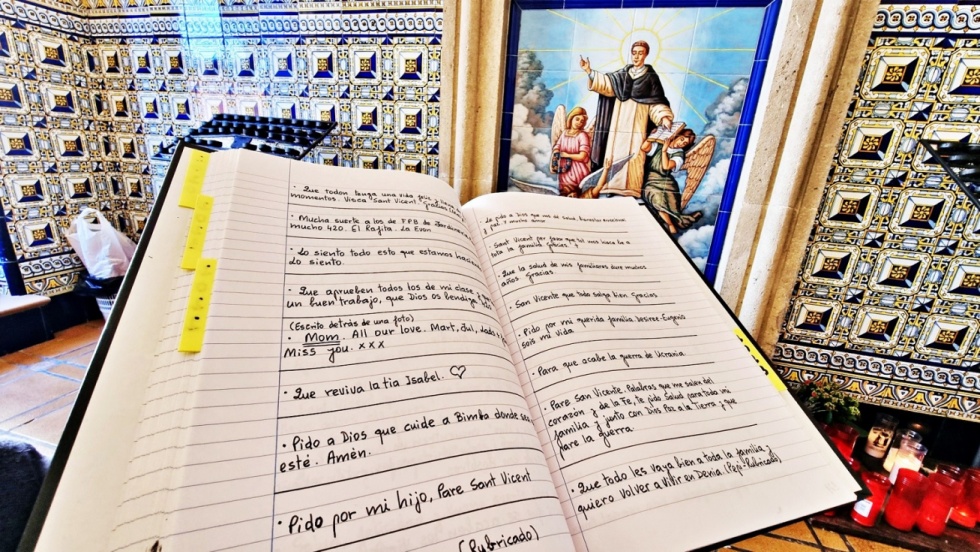 · Que todos tenga una vida feliz y
momentos. Visca "Sant Vicent"
· Mucha suerte a los de F.P.B. de
mucho 420. El Rafita. La Evon
· Lo siento todo esto que estamos
Lo siento.
· Que aprueben todos los de mi clase y
un buen trabajo, que Dios os bendiga
(Escrito detrás de una foto)
· Mom. All our love. Mart, Jul, dada
Miss you. x x x
· Que reviva la tia Isabel. ♡
· Pido a Dios que cuide a Bimba donde
esté. Amén.
· Pido por mi hijo, Pare Sant Vicent
(Rubricado)
Le pido a Dios que nos dé salud, bienestar
y paz y mucho amor
· Sant Vicent per favor que
tota la familia gràcies.
· Que la salud de mis familiares dure muchos
años. Gracias.
· San Vicente que todo salga bien. Gracias
· Pido por mi querida familia Desiree-Eugenio
sois mi vida
· Para que acabe la guerra de Ucrania
· Pare San Vicente. Palabras que me salen del
corazón y de la Fe, te pido Salud para toda mi
familia y junto con Dios Paz a la Tierra y que
pare la guerra.
· Que todo les vaya bien a toda la familia y
quiero volver a vivir en Denia. (Pepi-Rubricado)